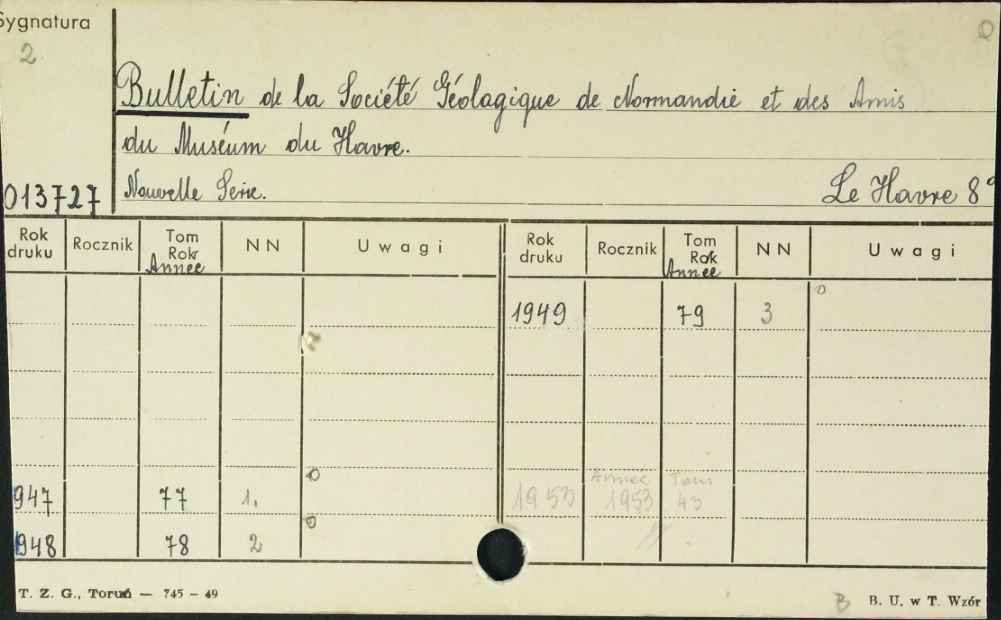 Sygnatura
2
Bulletin de la Société Géologique de Normandie et des Amis
du Muséum du Havre.
013727 Nouvelle Série. Le Havre 8°
Rok druku Rocznik Tom Rok Année NN Uwagi Rok druku Rocznik Tom Rok Année NN Uwagi
1949 79 3
Année Tom
947 77 1. 1953 1953 43
1948 78 2
T. Z. G., Toruń — 745 - 49 B B. U. w T. Wzór